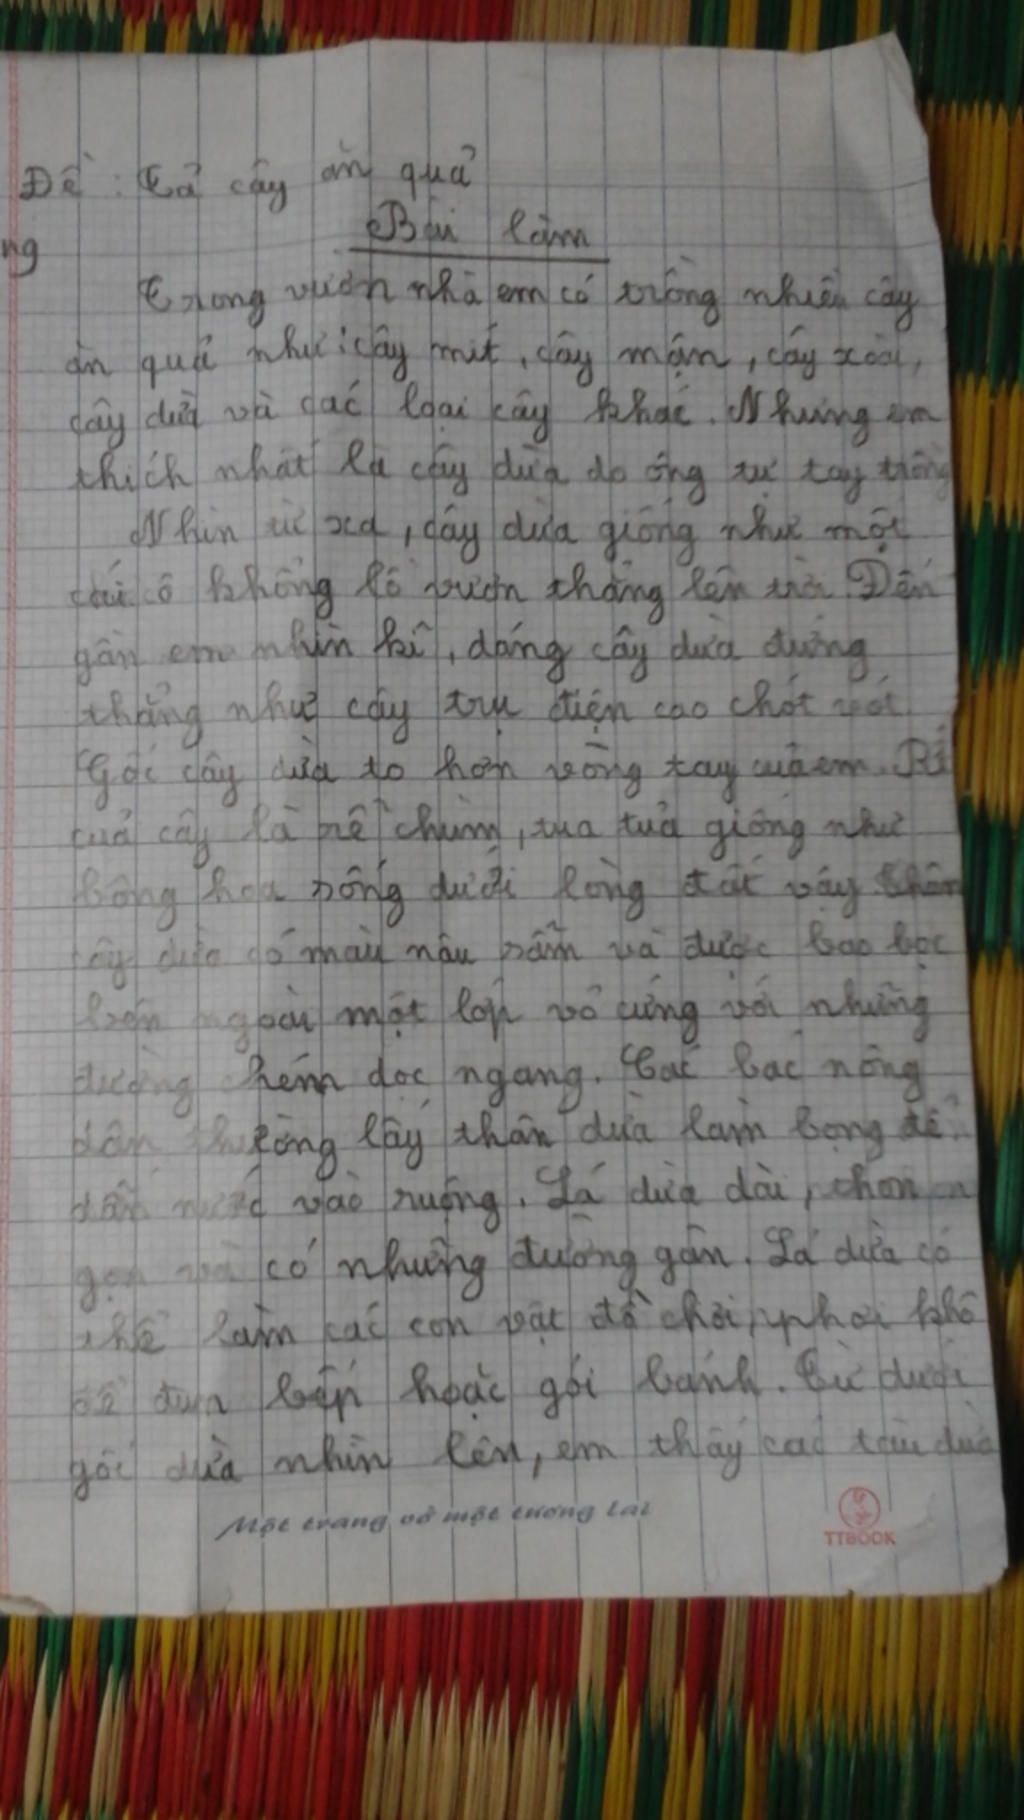 Đề: Tả cây ăn quả
Bài làm
ng
Trong vườn nhà em có trồng nhiều cây
ăn quả như: cây mít, cây mận, cây xoài,
cây dừa và các loại cây khác. Nhưng em
thích nhất là cây dừa do ông tự tay trồng
Nhìn từ xa, cây dừa giống như một
cái ô khổng lồ vươn thẳng lên trời. Đến
gần em nhìn kĩ, dáng cây dừa đứng
thẳng như cây trụ điện cao chót vót.
Gốc cây dừa to hơn vòng tay của em. Rễ
của cây là rễ chùm, tua tủa giống như
bông hoa sống dưới lòng đất vậy thân
cây dừa có màu nâu sẫm và được bao bọc
bên ngoài một lớp vỏ cứng với những
đường chém dọc ngang. Các bác nông
dân thường lấy thân dừa làm bọng để
dẫn nước vào ruộng. Lá dừa dài, thon
gọn và có những đường gân. Lá dừa có
thể làm các con vật đồ chơi, phơi khô
để đun bếp hoặc gói bánh. Từ dưới
gốc dừa nhìn lên, em thấy các tàu dừa
Một trang vở một tương lai
TTBOOK